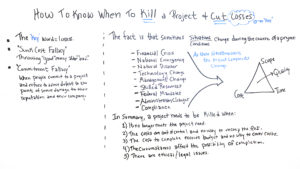 How To Know When To Kill a Project & Cut Losses.
The key words losses
"Sunk Cost Fallacy"
"Throwing good money after bad"
"Commitment Fallacy"
When people commit to a project
and refuse to admit defeat to the
point of severe damage to their
reputation and their company.
The fact is that sometimes Situations Change during the course of a project
Conditions
- Financial Crisis
- National Emergency
- Natural Disaster
- Technology Change
- Management Change
- Skilled Resources
- Federal Mandates
- Administration Change
- Compliance
Scope
Quality
Time
Cost
In Summary, a project needs to be killed when:
1) No longer meets the project need.
2) The risks are detrimental and no way to
3) The cost to complete exceeds budget and no way to
4) The Circumstances affect the possibility of completion.
5) There are ethical/legal issues.